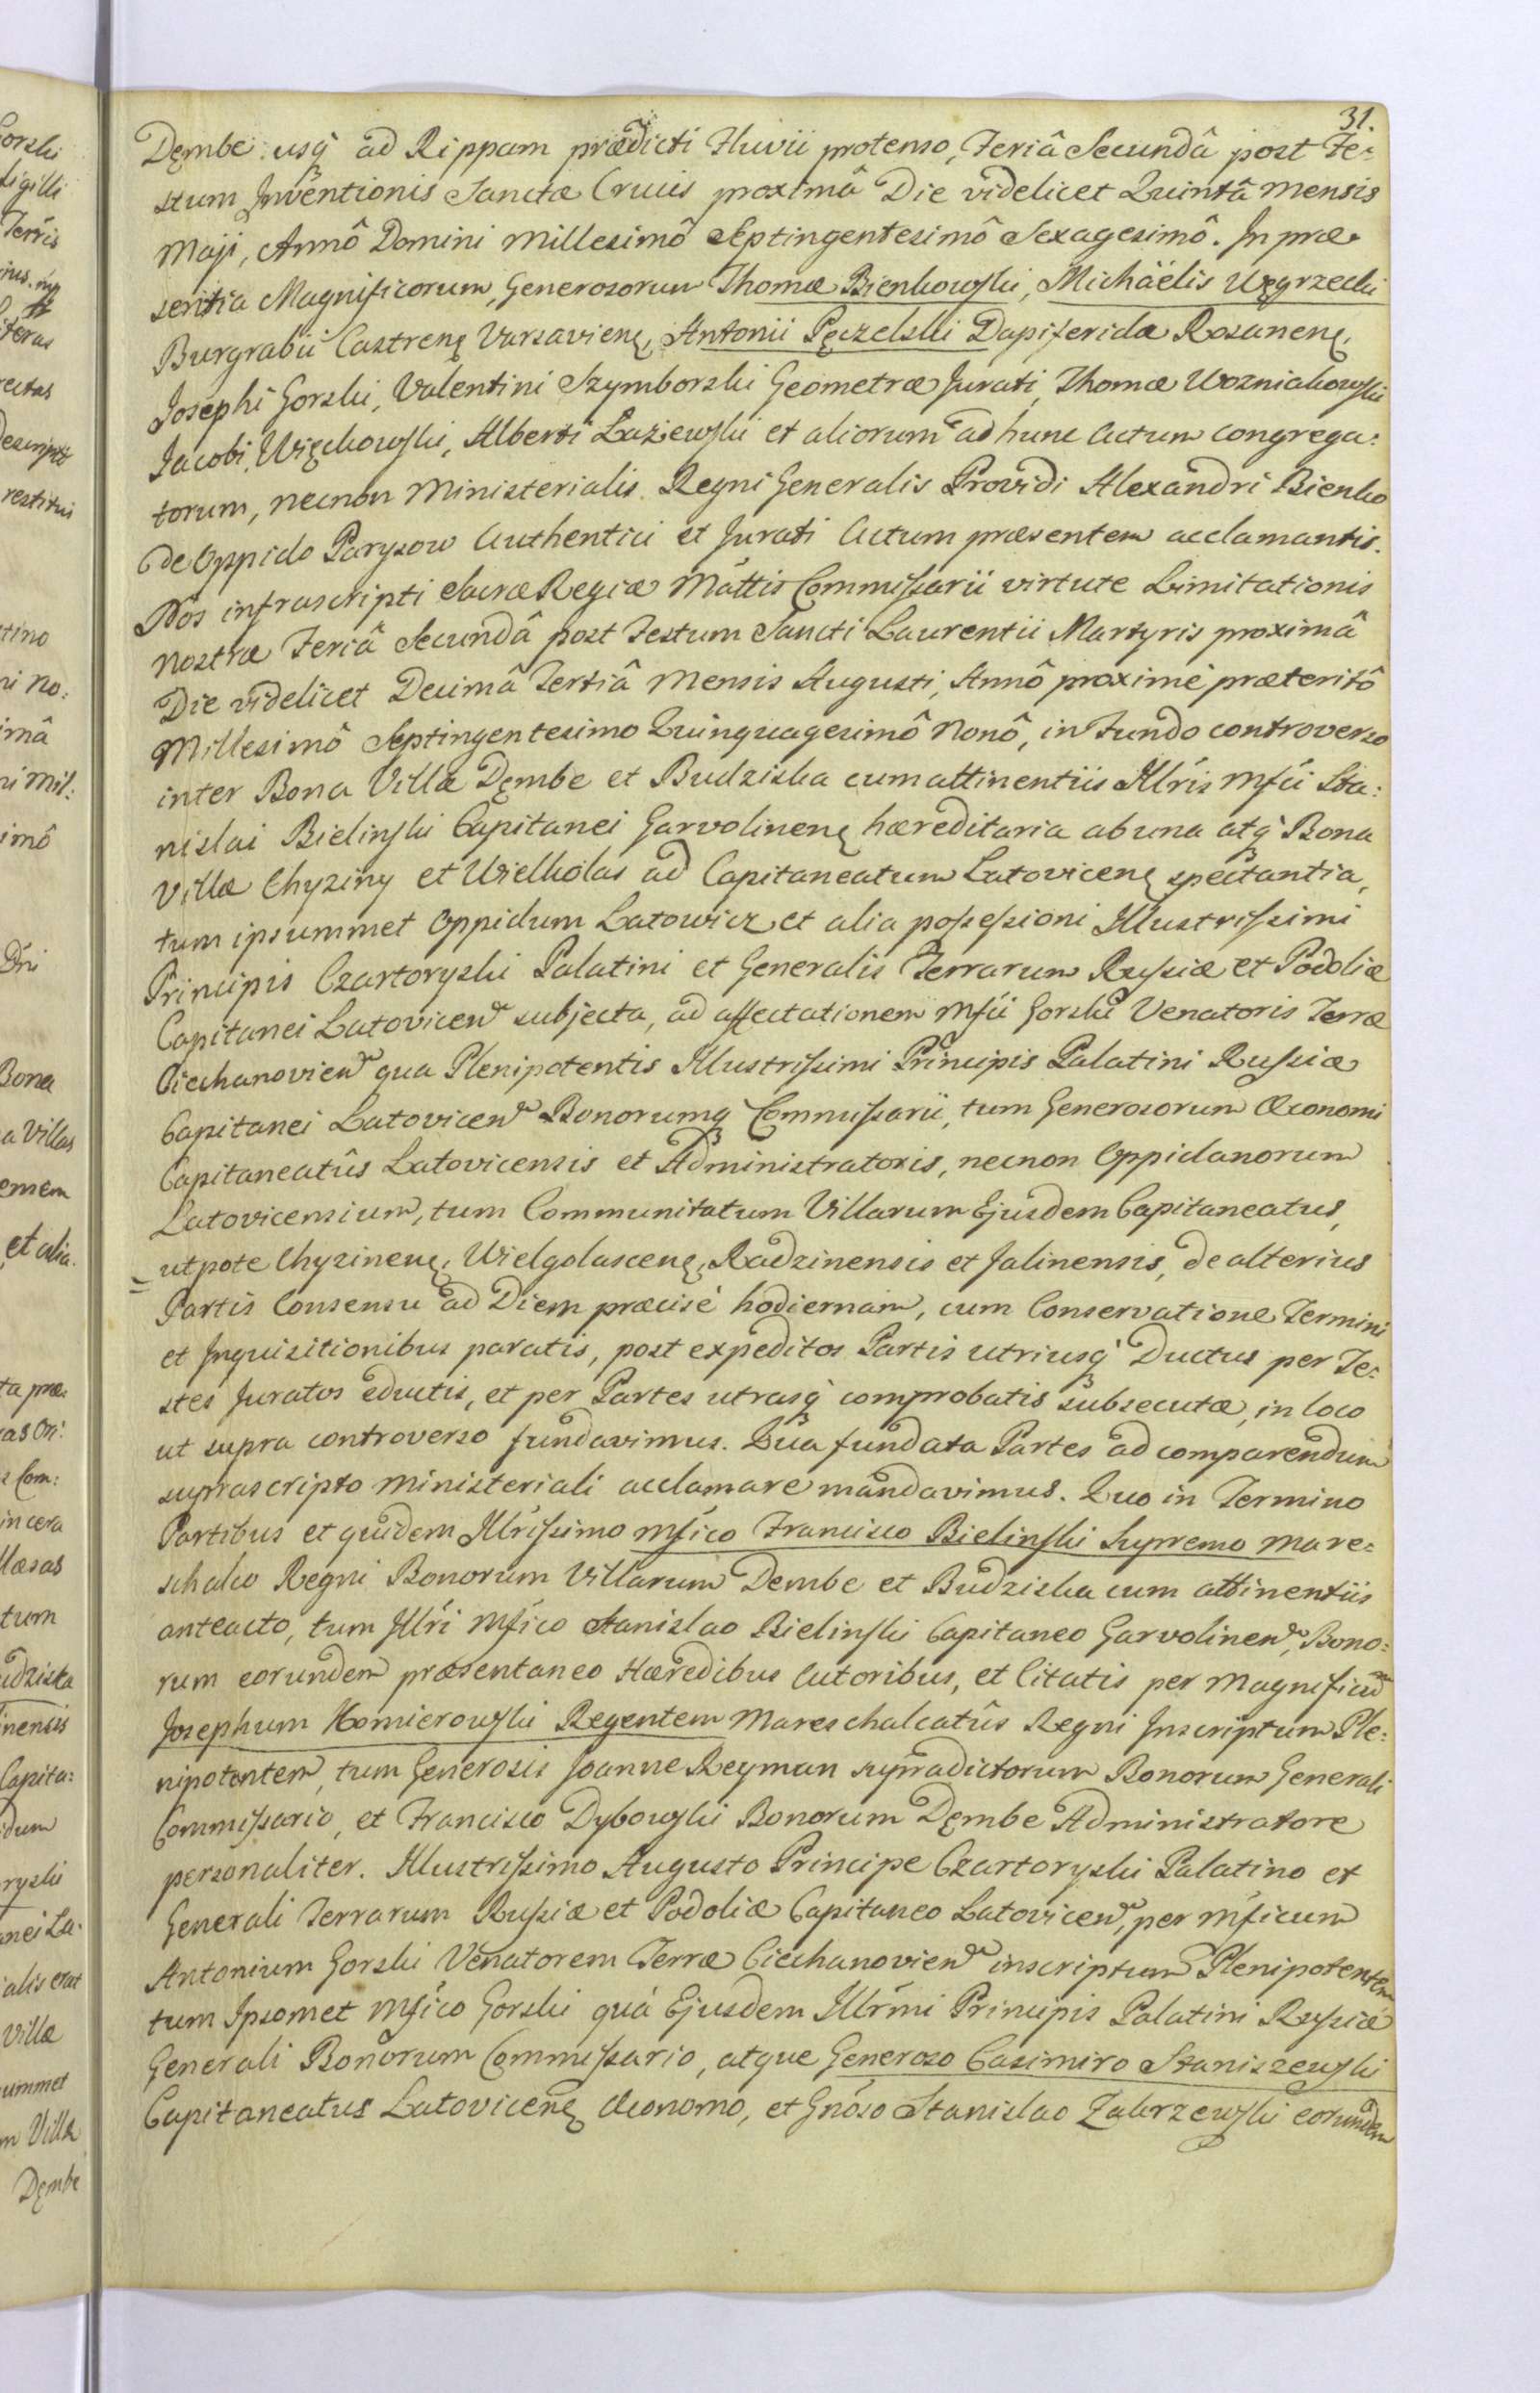 31.
Dęmbe usq̃ ad Rippam prædicti Fluvii protenso, Feriâ Secundâ post Fe-
stum Inventionis Sanctæ Crucis proximâ Die videlicet Quintâ mensis
Maji, Annô Domini Millesimô Septingentesimô Sexagesimô. In præ-
sentia Magnificorum, Generosorum Thomæ Bienkowski, Michäelis Węgrzecki
Burgrabii Castrenę Varsavienę, Antonii Pęczelski Dapiferidæ Rosanenę,
Josephi Gorski, Valentini Szymborski Geometræ Jurati, Thomæ Wozniakowski
Jacobi Więckowski, Alberti Łaziewski et aliorum ad hunc Actum congrega:
torum, necnon Ministerialis Regni Generalis Providi Alexandri Bienko
de Oppido Parysow Authentici et Jurati Actum præsentem acclamantis.
Nos infrascripti Sacræ Regiæ Mattis Commissarii virtute Limitationis
nostræ Feriâ Secundâ post Festum Sancti Laurentii Martyris proximâ
Die videlicet Decimâ Tertiâ Mensis Augusti, Annô proximè præteritô
Millesimô Septingentesimo Quinquagesimô Nonô, in Fundo controverso
inter Bona Villæ Dęmbe et Budziska cum attinentiis Illris Mfci Sta:
nislai Bielinski Capitanei Garvolinenę hæreditaria ab una atq̃ Bona
Villæ Chyziny et Wielkolas ad Capitaneatum Latovicenę spectantia,
tum ipsummet Oppidum Latowicz et alia possessioni Illustrissimi
Principis Czartoryski Palatini et Generalis Terrarum Russiæ et Podoliæ
Capitanei Latovicen̄ subjecta, ad affectationem Mfci Gorski Venatoris Terræ
Ciechanovien̄ qua Plenipotentis Illustrissimi Principis Palatini Russiæ
Capitanei Latovicen̄ Bonorumq̃ Commissarii, tum Generosorum Œconomi
Capitaneatûs Latovicensis et Administratoris, necnon Oppidanorum
Latovicensium, tum Communitatum Villarum Ejusdem Capitaneatus,
utpote Chyzinenę, Wielgolascenę, Radzinensis et Jalinensis, de alterius
Partis Consensu ad Diem præcisè hodiernam, cum Conservatione Termini
et Inquisitionibus paratis, post expeditos Partis utriusq̃ Ductus per Te-
stes Juratos eductis, et per Partes utrasq̃ comprobatis subsecutæ, in loco
ut supra controverso fundavimus. Qua fundata Partes ad comparendum
suprascripto Ministeriali acclamare mandavimus. Quo in Termino
Partibus et quidem Illrissimo Mfico Francisco Bielinski Supremo Mare-
schalco Regni Bonorum Villarum Dembe et Budziska cum attinentiis
anteacto, tum Illri Mfico Stanislao Bielinski Capitaneo Garvolinen̄, Bono-
rum eorundem præsentaneo Hæredibus Actoribus, et Citatis per Magnificum
Josephum Komierowski Regentem Mareschalcatûs Regni Inscriptum Ple:
nipotentem, tum Generosis Joanne Reyman supradictorum Bonorum Generali
Commissario, et Francisco Dybowski Bonorum Dęmbe Administratore
personaliter. Illustrissimo Augusto Principe Czartoryski Palatino et
Generali Terrarum Russiæ et Podoliæ Capitaneo Latovicen̄, per Mficum
Antonium Gorski Venatorem Terræ Ciechanovien̄ inscriptum Plenipotentem
tum Ipsomet Mfico Gorski quà Ejusdem Illrmi Principis Palatini Russiæ
Generali Bonorum Commissario, atque Generoso Casimiro Staniszewski
Capitaneatus Latovicenę Œconomo, et Gnoso Stanislao Zakrzewski eorundem